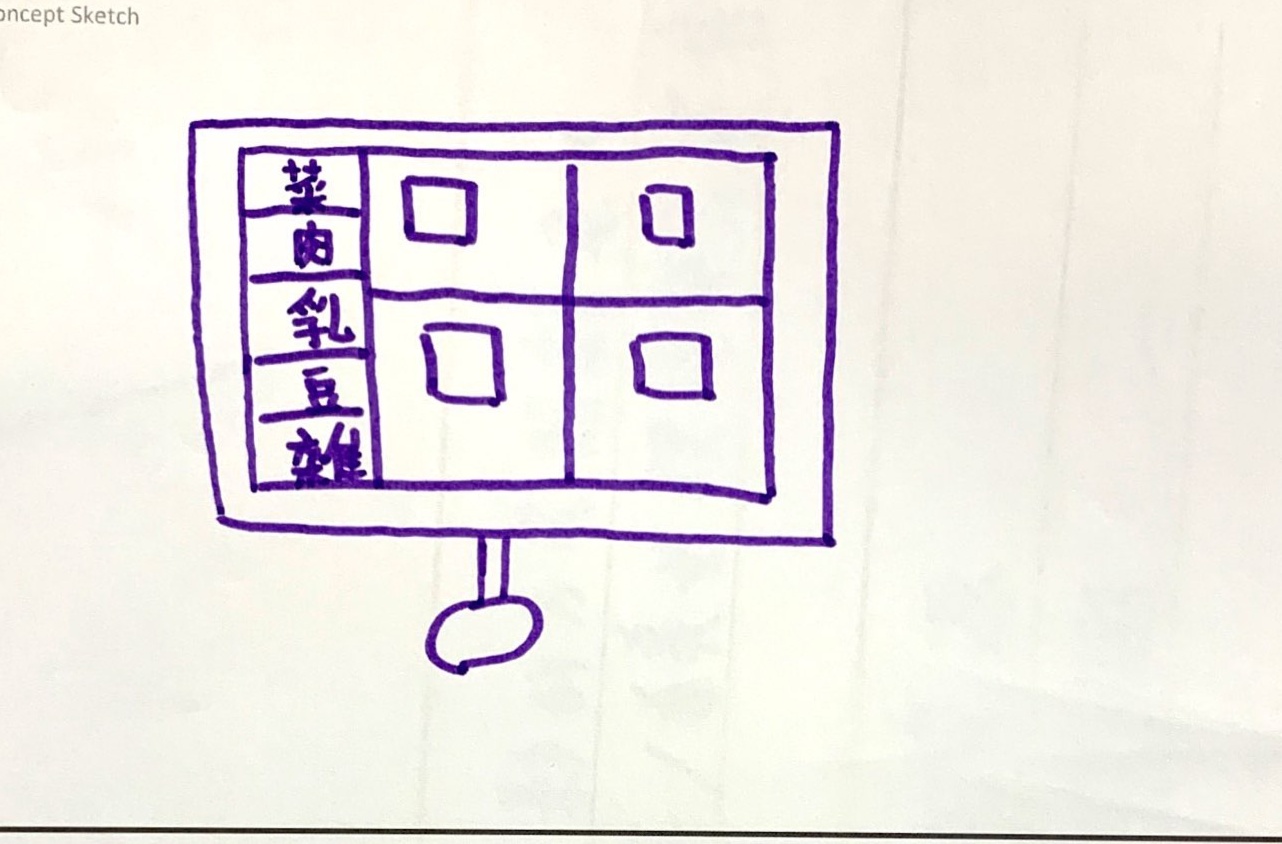 oncept Sketch
菜
肉
乳
豆
雑